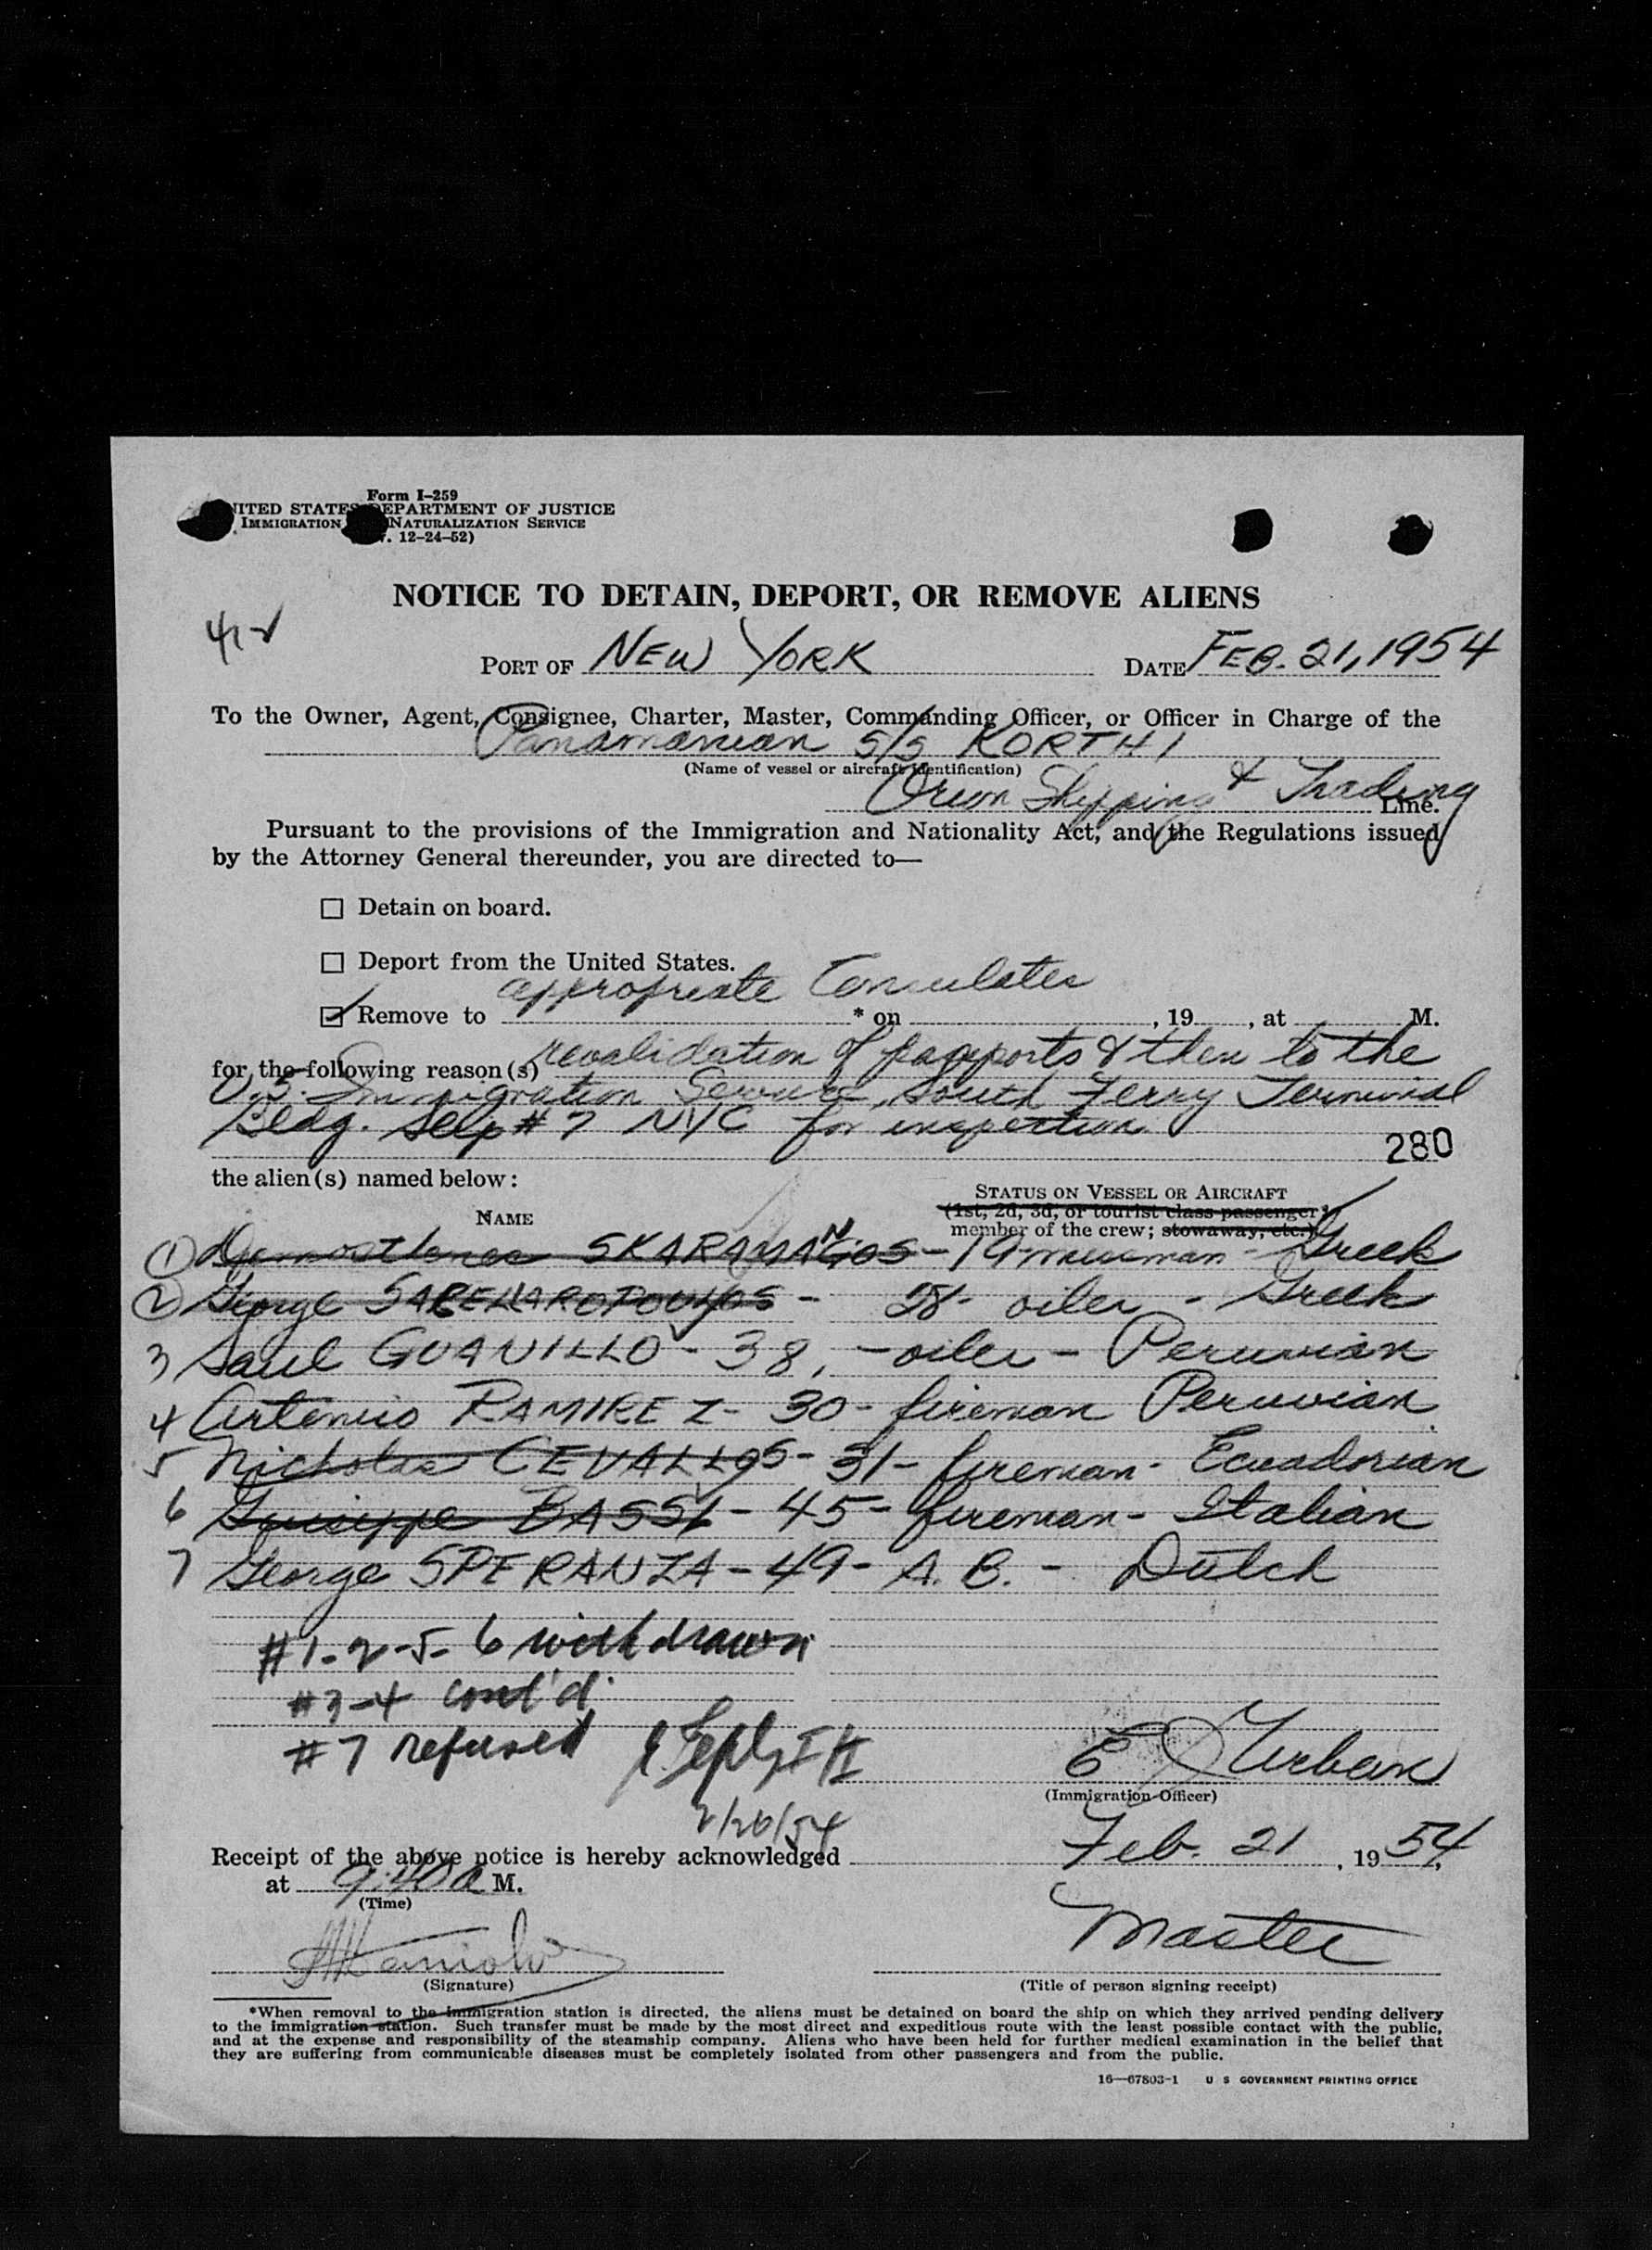 Form I-259
UNITED STATES DEPARTMENT OF JUSTICE
IMMIGRATION NATURALIZATION SERVICE
12-24-52)
NOTICE TO DETAIN, DEPORT, OR REMOVE ALIENS
PORT OF NEW YORK DATE FEB. 21, 1954
To the Owner, Agent, Consignee, Charter, Master, Commanding Officer, or Officer in Charge of the
Panamanian S/S KORTHI
(Name of vessel or aircraft identification)
Orion Shipping & Trading Line.
Pursuant to the provisions of the Immigration and Nationality Act, and the Regulations issued
by the Attorney General thereunder, you are directed to—
☐ Detain on board.
☐ Deport from the United States.
☑ Remove to appropriate Consulates * on , 19 , at M.
for the following reason(s) revalidation of passports & then to the
U.S. Immigration Service, South Ferry Terminal
Bldg. Slip #7 NYC for inspection
280
the alien(s) named below:
NAME
STATUS ON VESSEL OR AIRCRAFT
(1st, 2d, 3d, or tourist class passenger;
member of the crew; stowaway, etc.)
① Demosthenes SKARAMANGOS - 19 - - Greek
② George - 28 - oiler - Greek
3 Saul GUANILLO - 38, - oiler - Peruvian
4 Artemio RAMIREZ - 30 - fireman Peruvian
5 Nicholas CEVALLOS - 31 - fireman - Ecuadorian
6 Guiseppe BASSI - 45 - fireman - Italian
7 George SPERANZA - 49 - A.B. - Dutch
#1-2-5-6 withdrawn
#3-4 cond'd.
#7 refused
2/26/54
E Urban
(Immigration Officer)
Receipt of the above notice is hereby acknowledged Feb. 21, 1954,
at 9:40 a M.
(Time)
Master
(Signature)
(Title of person signing receipt)
*When removal to the immigration station is directed, the aliens must be detained on board the ship on which they arrived pending delivery
to the immigration station. Such transfer must be made by the most direct and expeditious route with the least possible contact with the public,
and at the expense and responsibility of the steamship company. Aliens who have been held for further medical examination in the belief that
they are suffering from communicable diseases must be completely isolated from other passengers and from the public.
16—67803-1 U S GOVERNMENT PRINTING OFFICE